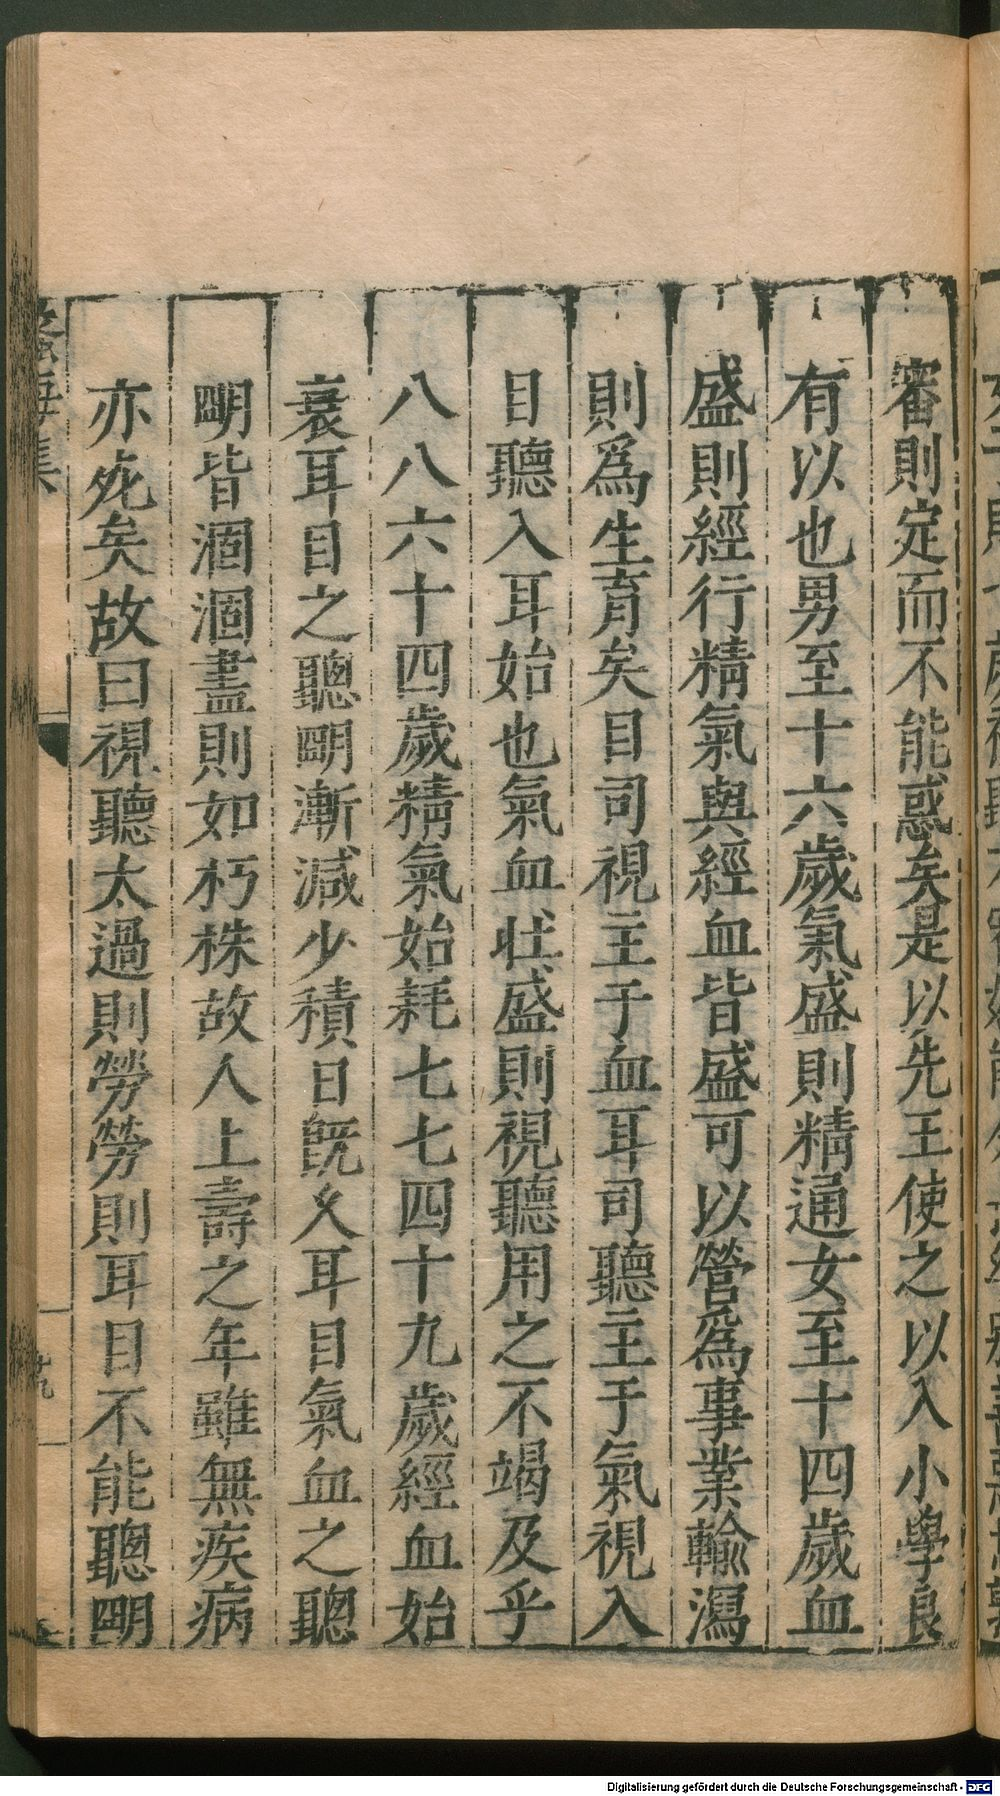 審則定而不能惑矣是以先王使之以入小學良
有以也男至十六歲氣盛則精通女至十四歲血
盛則經行精氣與經血皆盛可以營爲事業輸瀉
則爲生育矣目司視主于血耳司聽主于氣視入
目聽入耳始也氣血壯盛則視聽用之不竭及乎
八八六十四歲精氣始耗七七四十九歲經血始
衰耳目之聽明漸減少積日既久耳目氣血之聰
明皆涸涸盡則如朽株故人上壽之年雖無疾病
亦死矣故曰視聽太過則勞勞則耳目不能聰明
十九
Digitalisierung gefördert durch die Deutsche Forschungsgemeinschaft - DFG